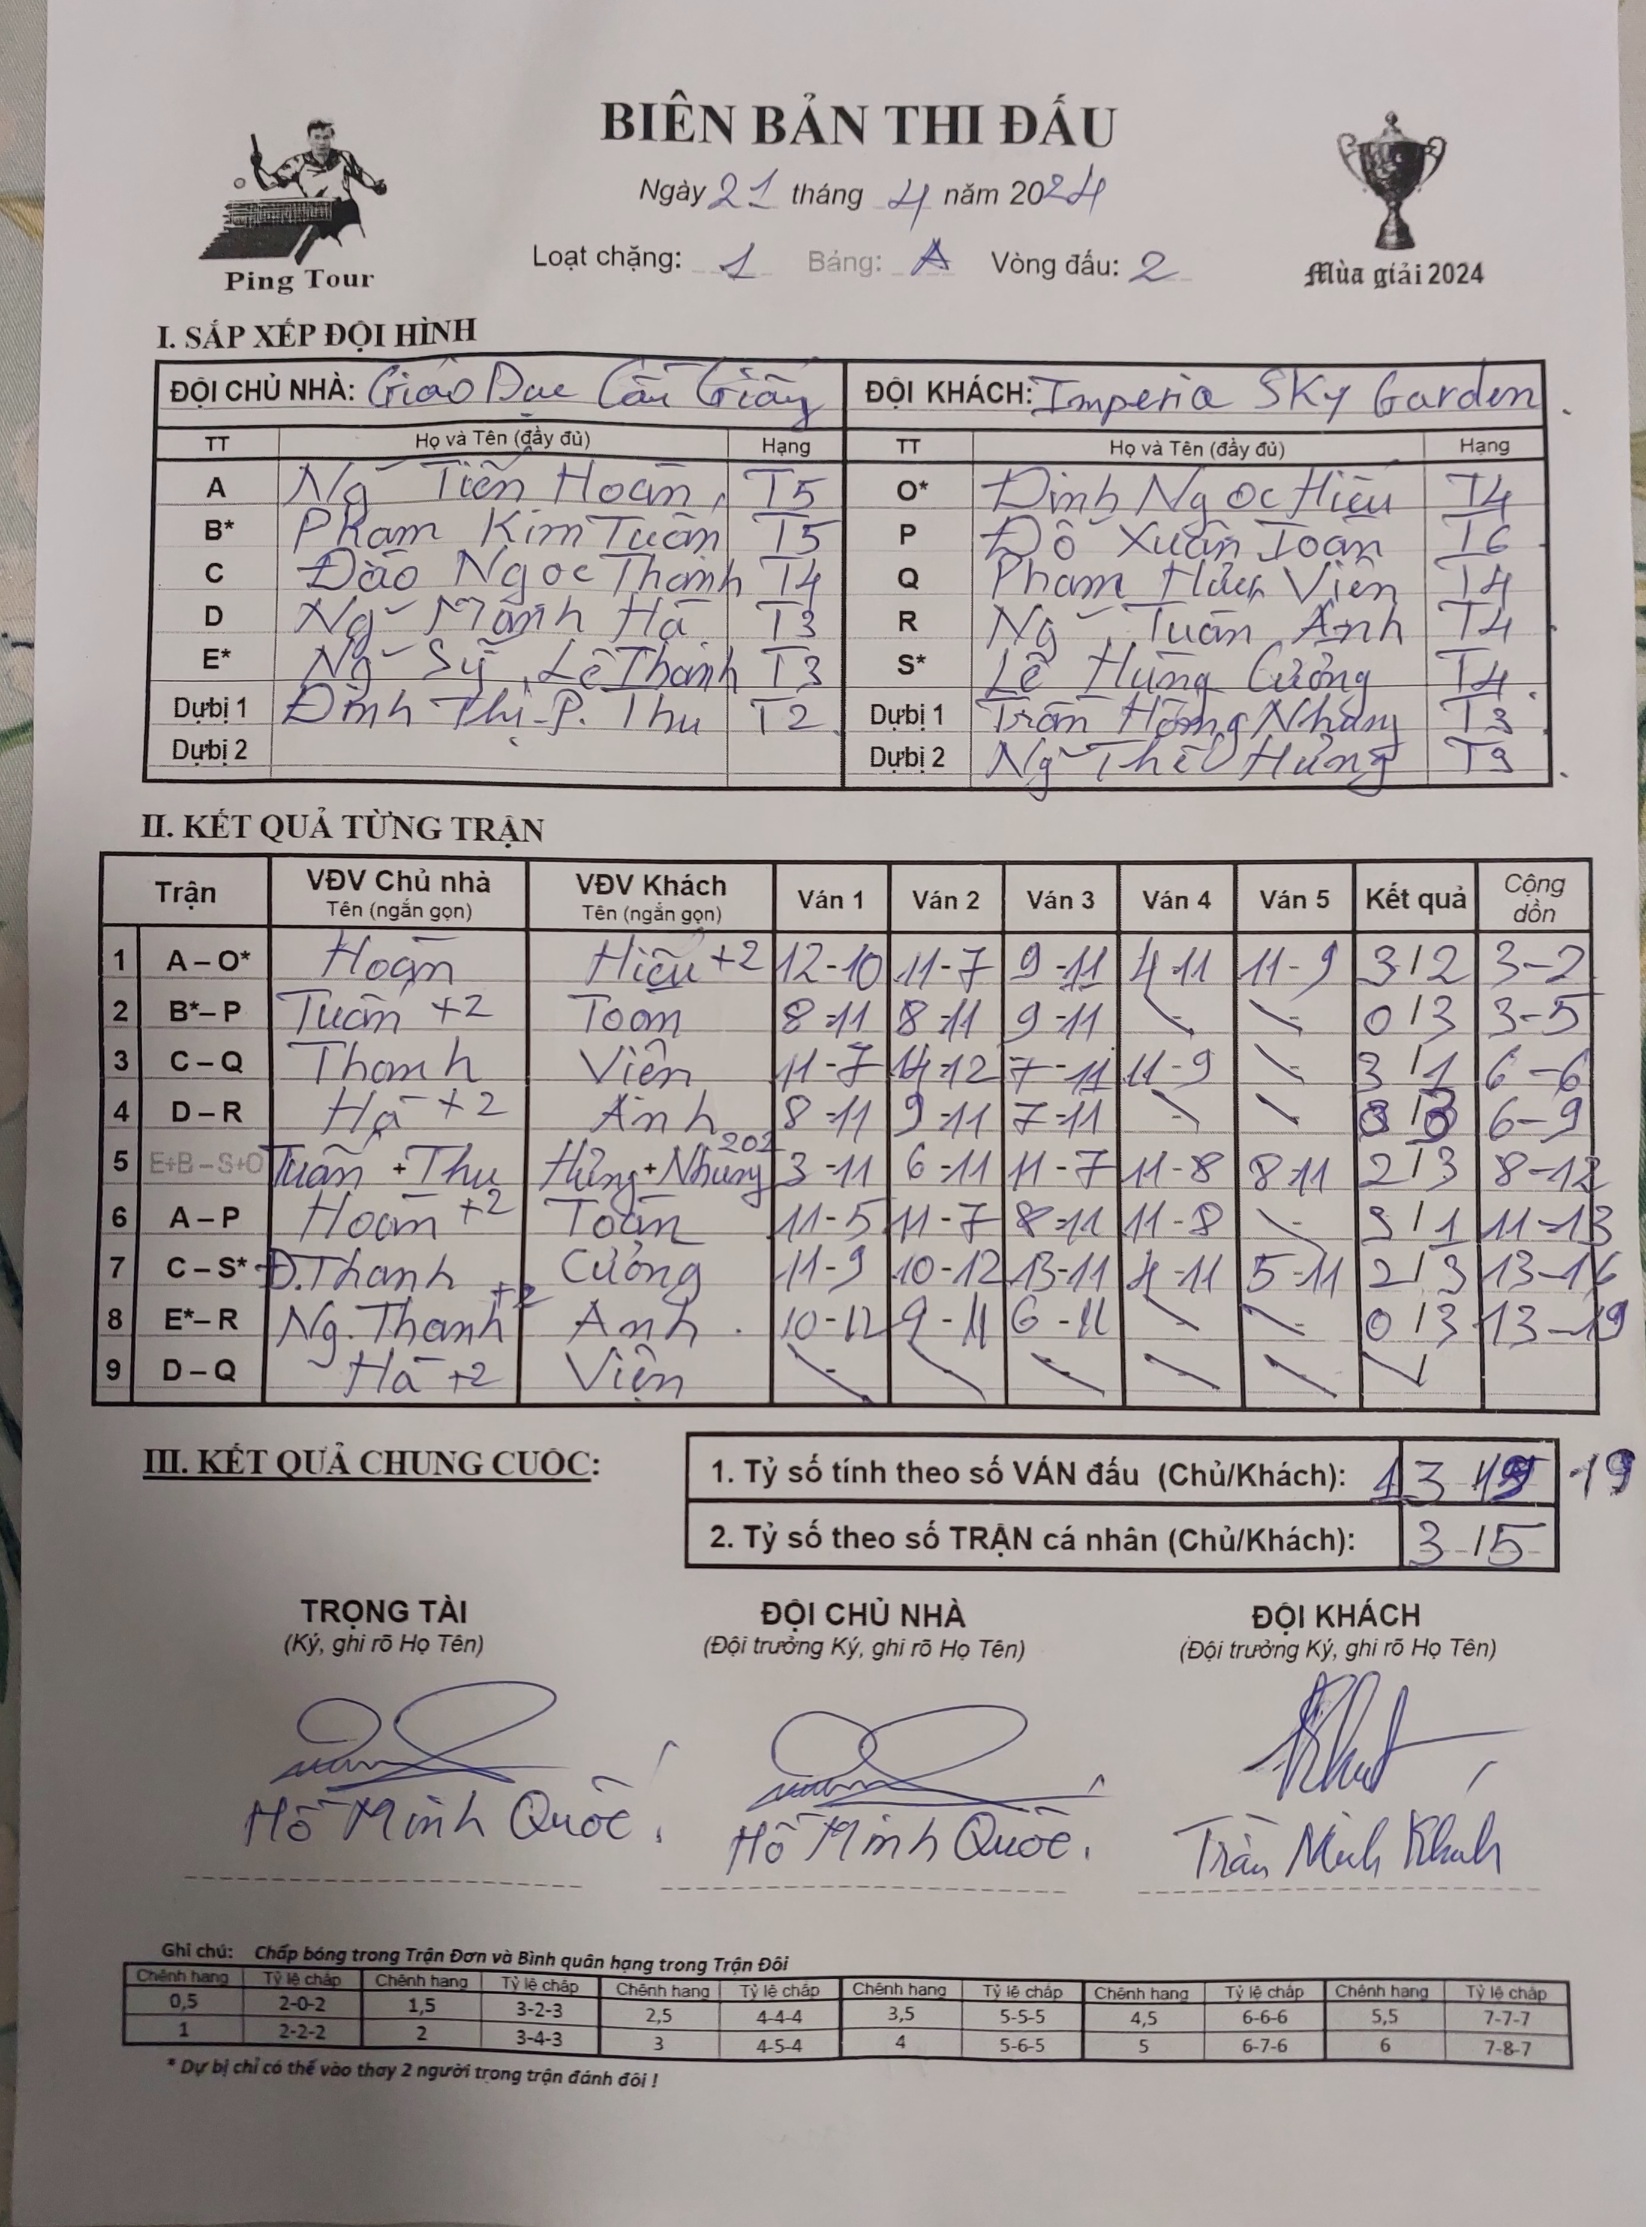 BIÊN BẢN THI ĐẤU
Ngày 21 tháng 4 năm 2024
Loạt chặng: 1 Bảng: A Vòng đấu: 2
Ping Tour
Mùa giải 2024
I. SẮP XẾP ĐỘI HÌNH
ĐỘI CHỦ NHÀ: Giáo Dục Cẩm Giàng ĐỘI KHÁCH: Imperia Sky Garden
TT Họ và Tên (đầy đủ) Hạng TT Họ và Tên (đầy đủ) Hạng
A Ng~ Tiến Hoàn, T5 O* Đinh Ngọc Hiếu T4
B* Phạm Kim Tuấn T5 P Đỗ Xuân Toàn T6
C Đào Ngọc Thành T4 Q Phạm Hữu Viên T4
D Ng~ Mạnh Hà T3 R Ng~ Tuấn Anh T4
E* Ng~ Sỹ Lê Thanh T3 S* Lê Hùng Cường T4
Dựbị 1 Đinh Thị P. Thu T2 Dựbị 1 Trần Hồng Nhung T3
Dựbị 2 Dựbị 2 Ng~ Thế Hưng T3
II. KẾT QUẢ TỪNG TRẬN
Trận VĐV Chủ nhà Tên (ngắn gọn) VĐV Khách Tên (ngắn gọn) Ván 1 Ván 2 Ván 3 Ván 4 Ván 5 Kết quả Cộng dồn
1 A – O* Hoàn Hiếu +2 12-10 11-7 9-11 4-11 11-9 3/2 3-2
2 B*– P Tuấn +2 Toàn 8-11 8-11 9-11 \ \ 0/3 3-5
3 C – Q Thành Viên 11-7 14-12 7-11 11-9 \ 3/1 6-6
4 D – R Hà +2 Anh 8-11 9-11 7-11 \ \ 0/3 6-9
5 E+B – S+O Tuấn + Thu Hưng + Nhung 202 3-11 6-11 11-7 11-8 8-11 2/3 8-12
6 A – P Hoàn +2 Toàn 11-5 11-7 8-11 11-8 \ 3/1 11-13
7 C – S* Đ.Thành Cường 11-9 10-12 13-11 4-11 5-11 2/3 13-16
8 E*– R Ng. Thanh +2 Anh 10-12 9-11 6-11 \ \ 0/3 13-19
9 D – Q Hà +2 Viên \ \ \ \ \ \/
III. KẾT QUẢ CHUNG CUỘC:
1. Tỷ số tính theo số VÁN đấu (Chủ/Khách): 13 / -19
2. Tỷ số theo số TRẬN cá nhân (Chủ/Khách): 3/5
TRỌNG TÀI ĐỘI CHỦ NHÀ ĐỘI KHÁCH
(Ký, ghi rõ Họ Tên) (Đội trưởng Ký, ghi rõ Họ Tên) (Đội trưởng Ký, ghi rõ Họ Tên)
Hồ Minh Quốc. Hồ Minh Quốc. Trần Minh Khánh
Ghi chú: Chấp bóng trong Trận Đơn và Bình quân hạng trong Trận Đôi
Chênh hạng Tỷ lệ chấp Chênh hạng Tỷ lệ chấp Chênh hạng Tỷ lệ chấp Chênh hạng Tỷ lệ chấp Chênh hạng Tỷ lệ chấp Chênh hạng Tỷ lệ chấp
0,5 2-0-2 1,5 3-2-3 2,5 4-4-4 3,5 5-5-5 4,5 6-6-6 5,5 7-7-7
1 2-2-2 2 3-4-3 3 4-5-4 4 5-6-5 5 6-7-6 6 7-8-7
* Dự bị chỉ có thể vào thay 2 người trong trận đánh đôi !